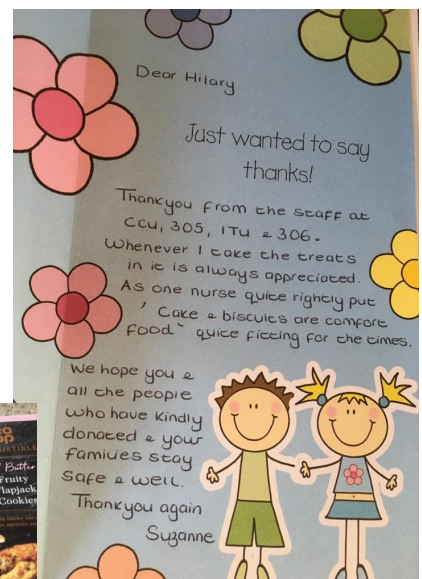 Dear Hilary
Just wanted to say
thanks!
Thankyou from the staff at
CCU, 305, ITU & 306.
Whenever I take the treats
in it is always appreciated.
As one nurse quite rightly put
' Cake & biscuits are comfort
food" quite fitting for the times.
We hope you &
all the people
who have kindly
donated & your
families stay
safe & well.
Thankyou again
Suzanne
Butter
Fruity
Flapjack
Cookies